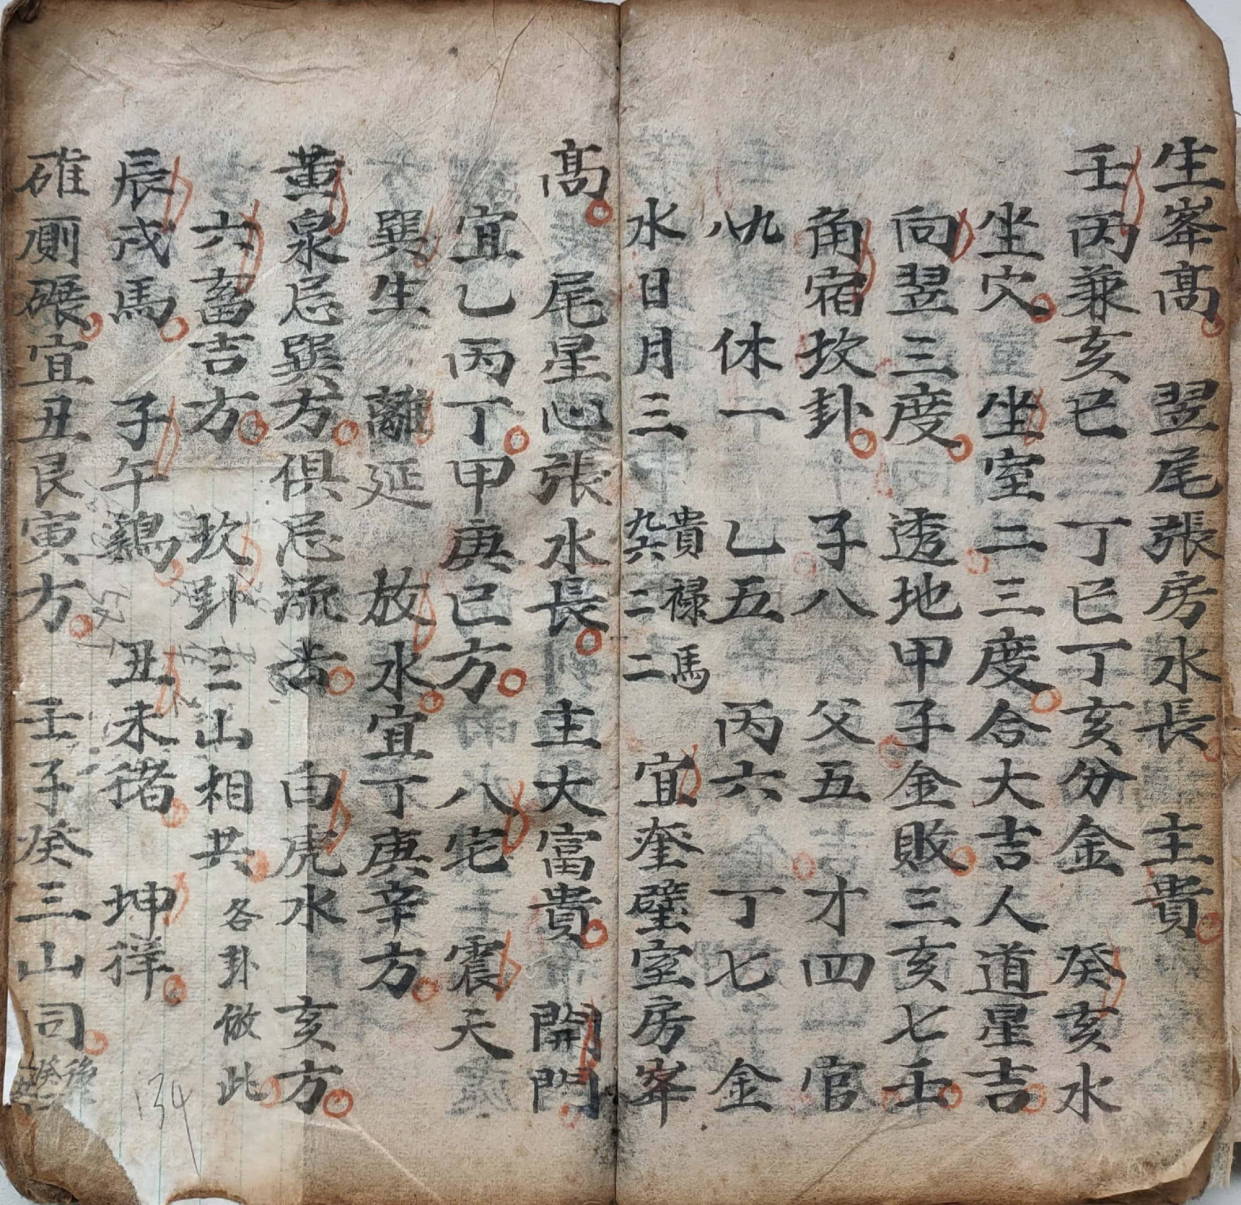 生峯髙 翌尾張房水長 主貴
壬丙兼亥巳 丁巳丁亥分金 癸亥水
坐穴 坐室二三度合大吉人道星吉
向翌三度 透地甲子金敗三亥七壬
角宿坎卦 子八 父五 才四 官
九八 休一 乙五 丙六 丁七 金
水日月三 貴禄馬 二二 宜奎壁室房峯
髙 尾星心張水長 主大富貴 開門
宜乙丙丁甲庚巳方 八宅 震天
巽生 離延 放水宜丁庚辛方
黄泉忌巽方俱忌流去 白虎水 亥方
六畜吉方 坎卦三山相共 各卦倣此
辰戍馬 子午鷄 丑未猪 坤徉
碓厠碾宜丑艮寅方 壬子癸三山同 後
134